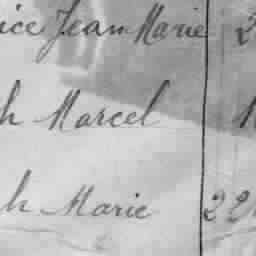 ice Jean Marie 2
h Marcel
h Marie 22